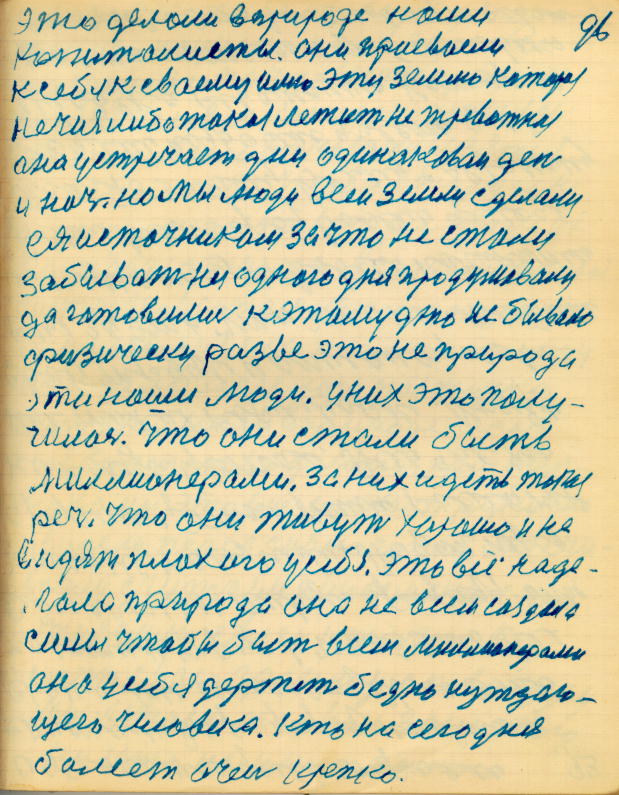 это делали в природе наши 96
капиталисты. они присвоели
к себя к своему имю эту землю которая
не чия либо такая лежит не тревожная
она устречает дни одинакован ден
и ноч. но мы люди всей земли сделали
ея источником за что не стали
забыват ни одного дня продумовали
да готовили к этому дню не бывало
физически разве это не природа
эти наши люди. у них это полу-
чилос. что они стали быть
миллионерами. за них идеть такая
реч. что они живут хорошо и не
видят плохого у себя. это всё наде-
лала природа она не всем создала
силы чтобы быт всем миллионерами
она у себя держит бедно нуждаю-
щего человека. кто на сегодня
болеет очен крепко.